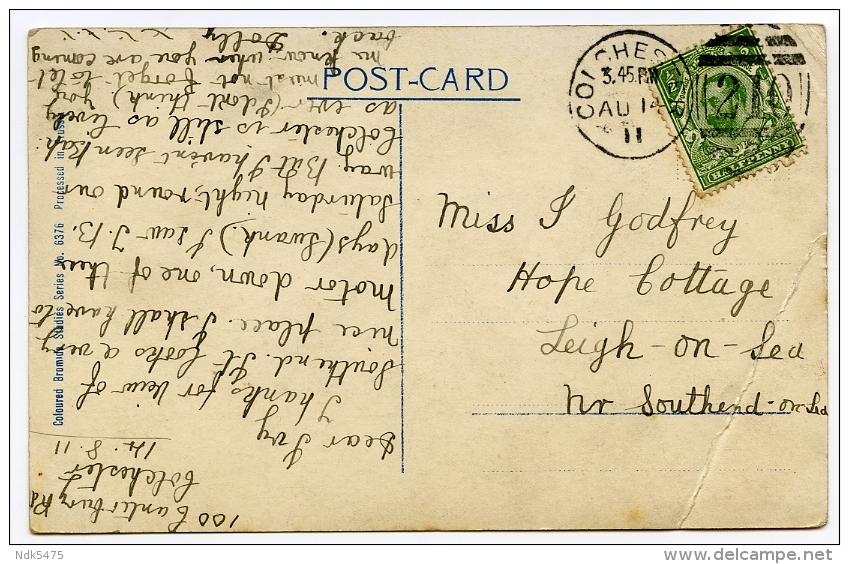 POST-CARD
COLCHESTER
3.45.PM
AU 14
11
210
HALFPENNY
Miss I Godfrey
Hope Cottage
Leigh-on-Sea
Nr Southend-on-Sea
100 Canterbury Rd
Colchester
14.8.11
Dear Ivy
Thanks for view of
Southend. It looks a very
nice place. I shall have to
motor down, one of these
days (Swank.) I saw J.B.
Saturday night, round our
way. But I havent seen
Colchester is still as lively
as ever (I dont think) You
must not forget to let
me know when you are coming
back. Dolly
x x x x
Coloured Bromide Studies Series No. 6376 Processed in
Ndk5475
www.delcampe.net